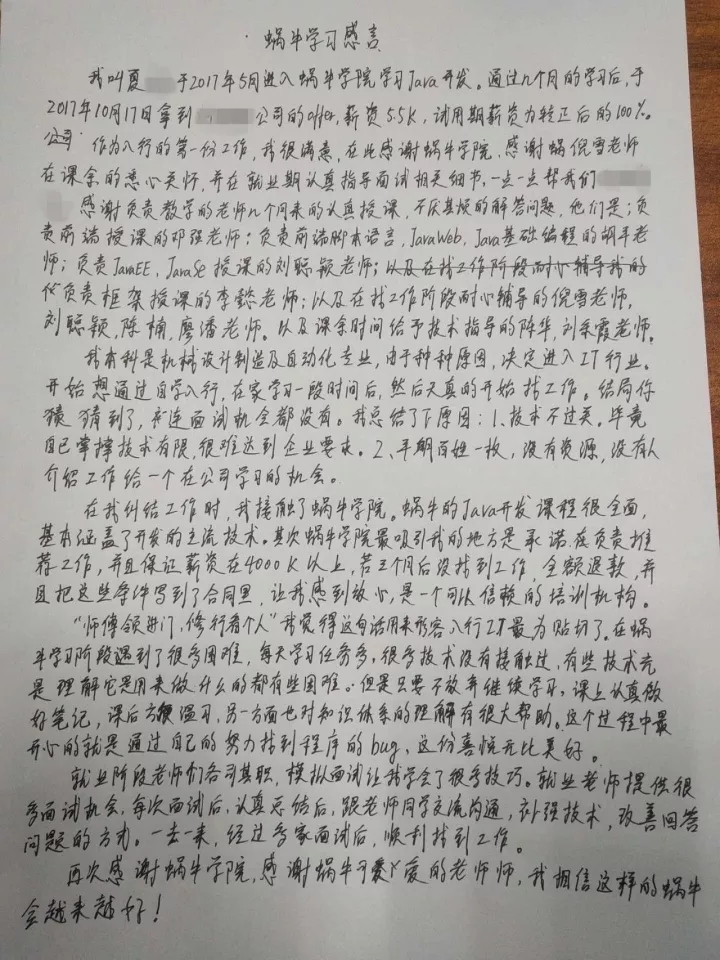 蜗牛学习感言
我叫夏 于2017年5月进入蜗牛学院学习Java开发。通过几个月的学习后,于
2017年10月17日拿到 公司的offer,薪资5.5K,试用期薪资为转正后的100%。
公司
作为入行的第一份工作,我很满意,在此感谢蜗牛学院,感谢蜗倪雪老师
在课余的悉心关师,并在就业期认真指导面试相关细节,一点一点帮我们
感谢负责教学的老师几个月来的认真授课,不厌其烦的解答问题,他们是:负
责前端授课的邓强老师;负责前端脚本语言,JavaWeb,Java基础编程的胡平老
师;负责JavaEE,JavaSe授课的刘聪颖老师;以及在找工作阶段耐心辅导我的
负责框架授课的李懿老师;以及在找工作阶段耐心辅导的倪雪老师,
刘聪颖,陈楠,廖潘老师。以及课余时间给予技术指导的陈华,刘素霞老师。
我本科是机械设计制造及自动化专业,由于种种原因,决定进入IT行业。
开始想通过自学入行,在家学习一段时间后,然后天真的开始找工作。结局你
猿猜到了,连面试机会都没有。我总结了下原因:1、技术不过关。毕竟
自己掌握技术有限,很难达到企业要求。2、平期百姓一枚,没有资源,没有人
介绍工作给一个在公司学习的机会。
在我纠结工作时,我接触了蜗牛学院。蜗牛的Java开发课程很全面,
基本涵盖了开发的主流技术。其次蜗牛学院最吸引我的地方是承诺.在负责推
荐工作,并且保证薪资在4000K以上,若三个月后没找到工作,全额退款,并
且把这些条件写到了合同里,让我感到放心,是一个可以信赖的培训机构。
“师傅领进门,修行看个人”我觉得这句话用来形容入行IT最为贴切了。在蜗
牛学习阶段遇到了很多困难,每天学习任务多,很多技术没有接触过,有些技术光
是理解它是用来做什么的都有些困难。但是只要不放弃继续学习,课上认真做
好笔记,课后方便温习,另一方面也对知识体系的理解有很大帮助。这个过程中最
开心的就是通过自己的努力找到程序的bug,这份喜悦无比美好。
就业阶段老师们各司其职,模拟面试让我学会了很多技巧。就业老师提供很
多面试机会,每次面试后,认真总结后,跟老师同学交流沟通,补强技术,改善回答
问题的方式。一去一来,经过多家面试后,顺利找到工作。
再次感谢蜗牛学院,感谢蜗牛可爱的老师师,我相信这样的蜗牛
会越来越好!